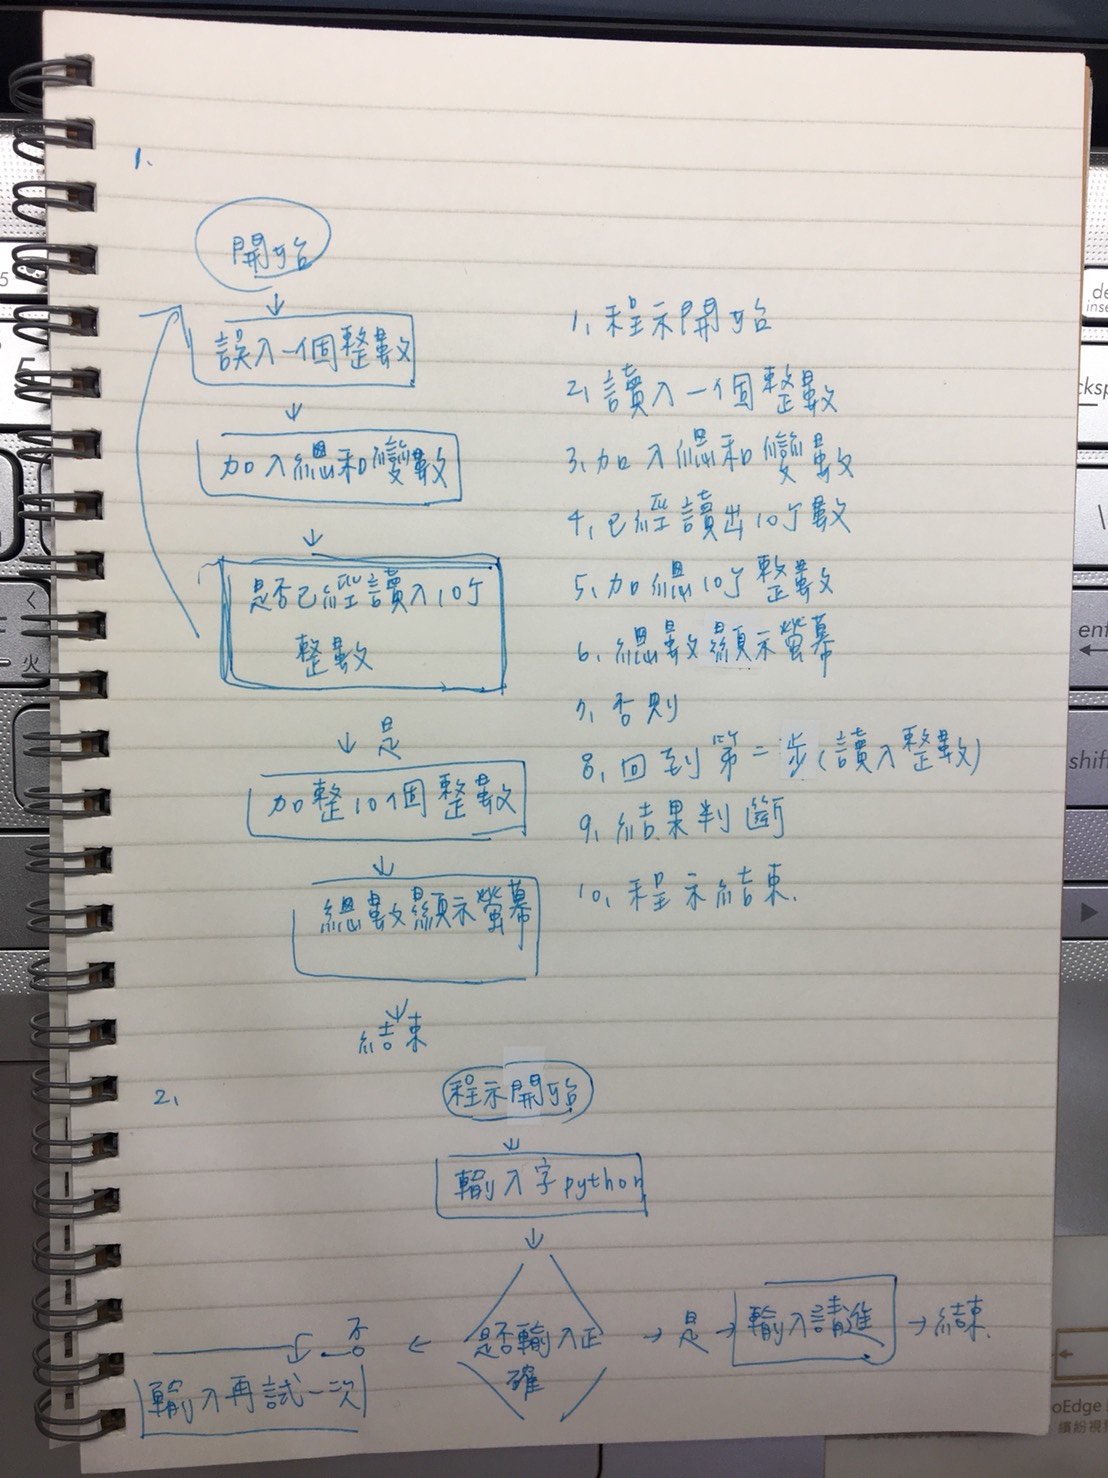 1.
開始
↓
誤入一個整數
↓
加入總和變數
↓
是否已經讀入10個
整數
↓是
加整10個整數
↓
總數顯示螢幕
↓
結束
1. 程示開始
2. 讀入一個整數
3. 加入總和變數
4. 已經讀出10個數
5. 加總10個整數
6. 總數顯示螢幕
7. 否則
8. 回到第二步(讀入整數)
9. 結果判斷
10. 程示結束.
2.
程示開始
↓
輸入字python
↓
是否輸入正
確
→是→
輸入請進
→結束.
← 否
輸入再試一次
enter
shift
火